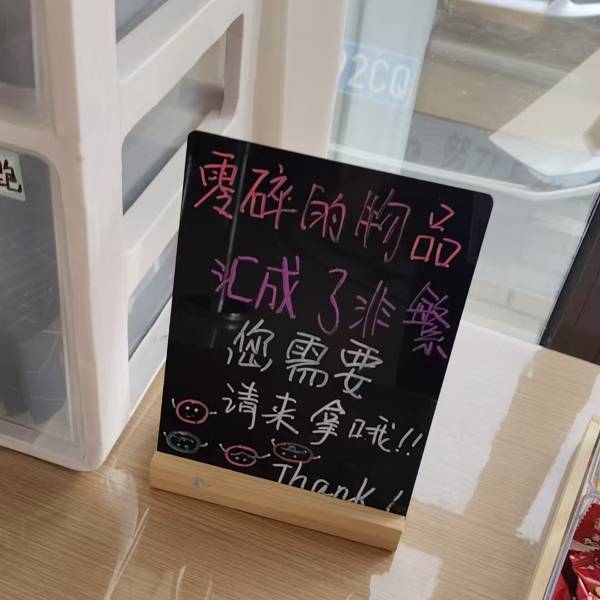 零碎的物品
汇成了非繁
您需要
请来拿哦!!
Thank!
2CQ